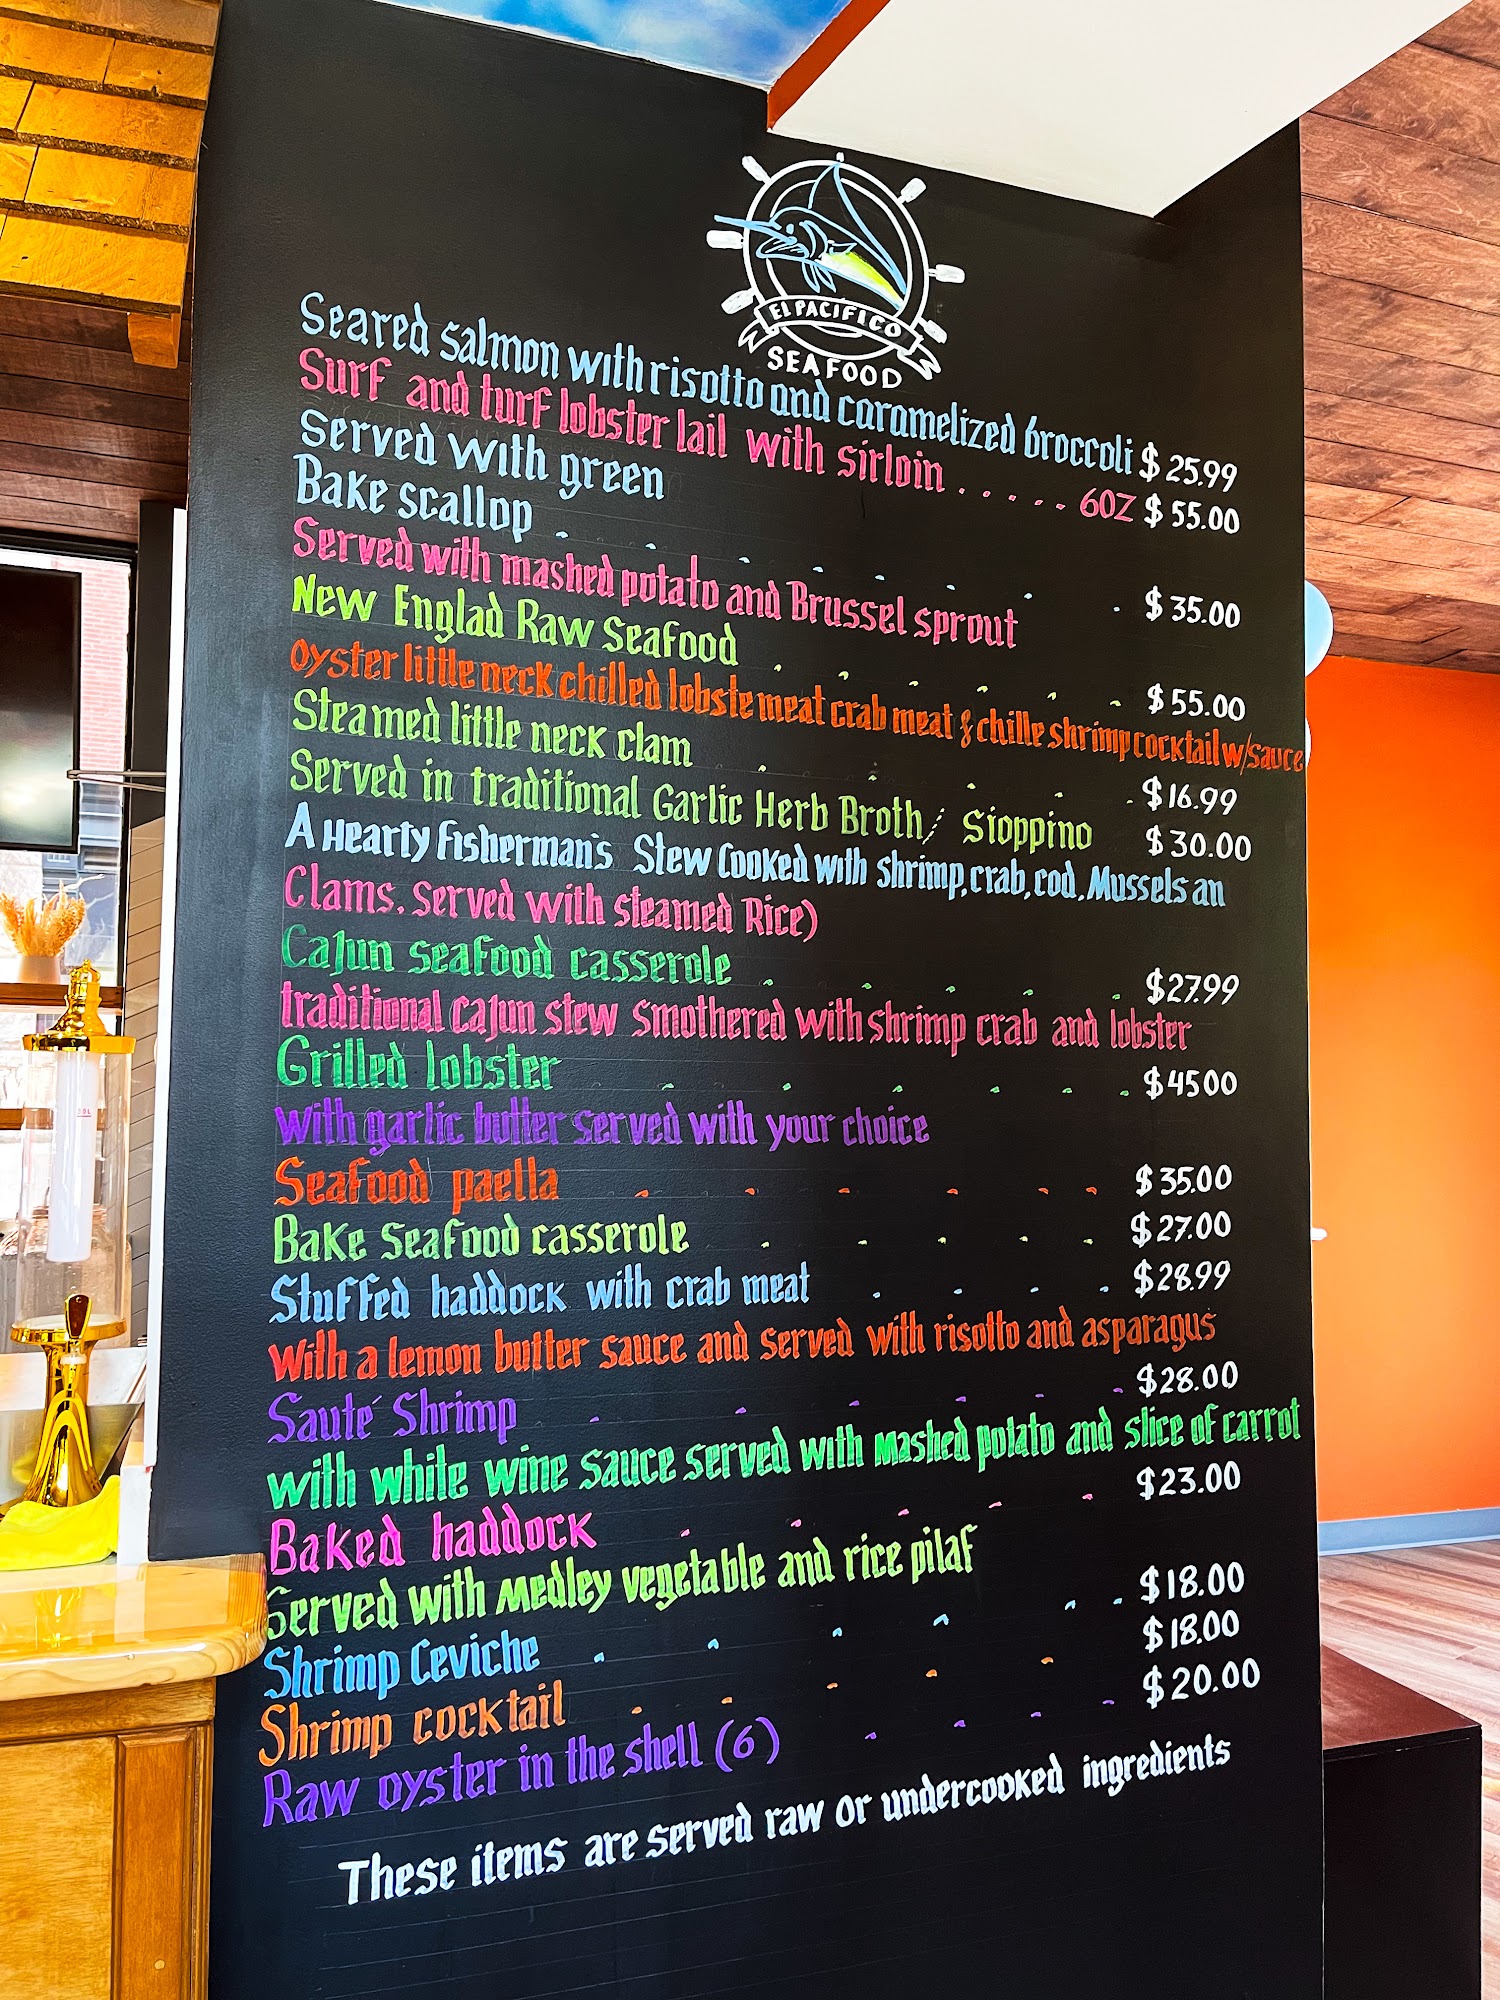 EL PACIFICO
SEAFOOD
Seared salmon with risotto and caramelized broccoli $ 25.99
Surf and turf lobster tail with sirloin . . . . . 6OZ $ 55.00
Served with green
Bake scallop . . . . . . . . $ 35.00
Served with mashed potato and Brussel sprout
New Englad Raw Seafood . . . . . . $ 55.00
Oyster little neck chilled lobste meat crab meat & chille shrimp cocktail w/sauce
Steamed little neck clam . . . . . $16.99
Served in traditional Garlic Herb Broth/ Sioppino $30.00
A Hearty Fisherman's Stew Cooked with shrimp, crab, cod, Mussels an
Clams. Served with steamed Rice)
Cajun seafood casserole . . . . . $27.99
traditional cajun stew smothered with shrimp crab and lobster
Grilled lobster . . . . . . $4500
with garlic butter served with your choice
Seafood paella . . . . . . $35.00
Bake Seafood casserole . . . . . $27.00
Stuffed haddock with crab meat . . . . $28.99
With a lemon butter sauce and served with risotto and asparagus
Sauté Shrimp . . . . . . $28.00
with white wine sauce served with Mashed potato and slice of carrot
Baked haddock . . . . . $23.00
Served with Medley vegetable and rice pilaf
Shrimp Ceviche . . . . . . $18.00
Shrimp cocktail . . . . . $18.00
Raw oyster in the shell (6) . . . . $20.00
These items are served raw or undercooked ingredients